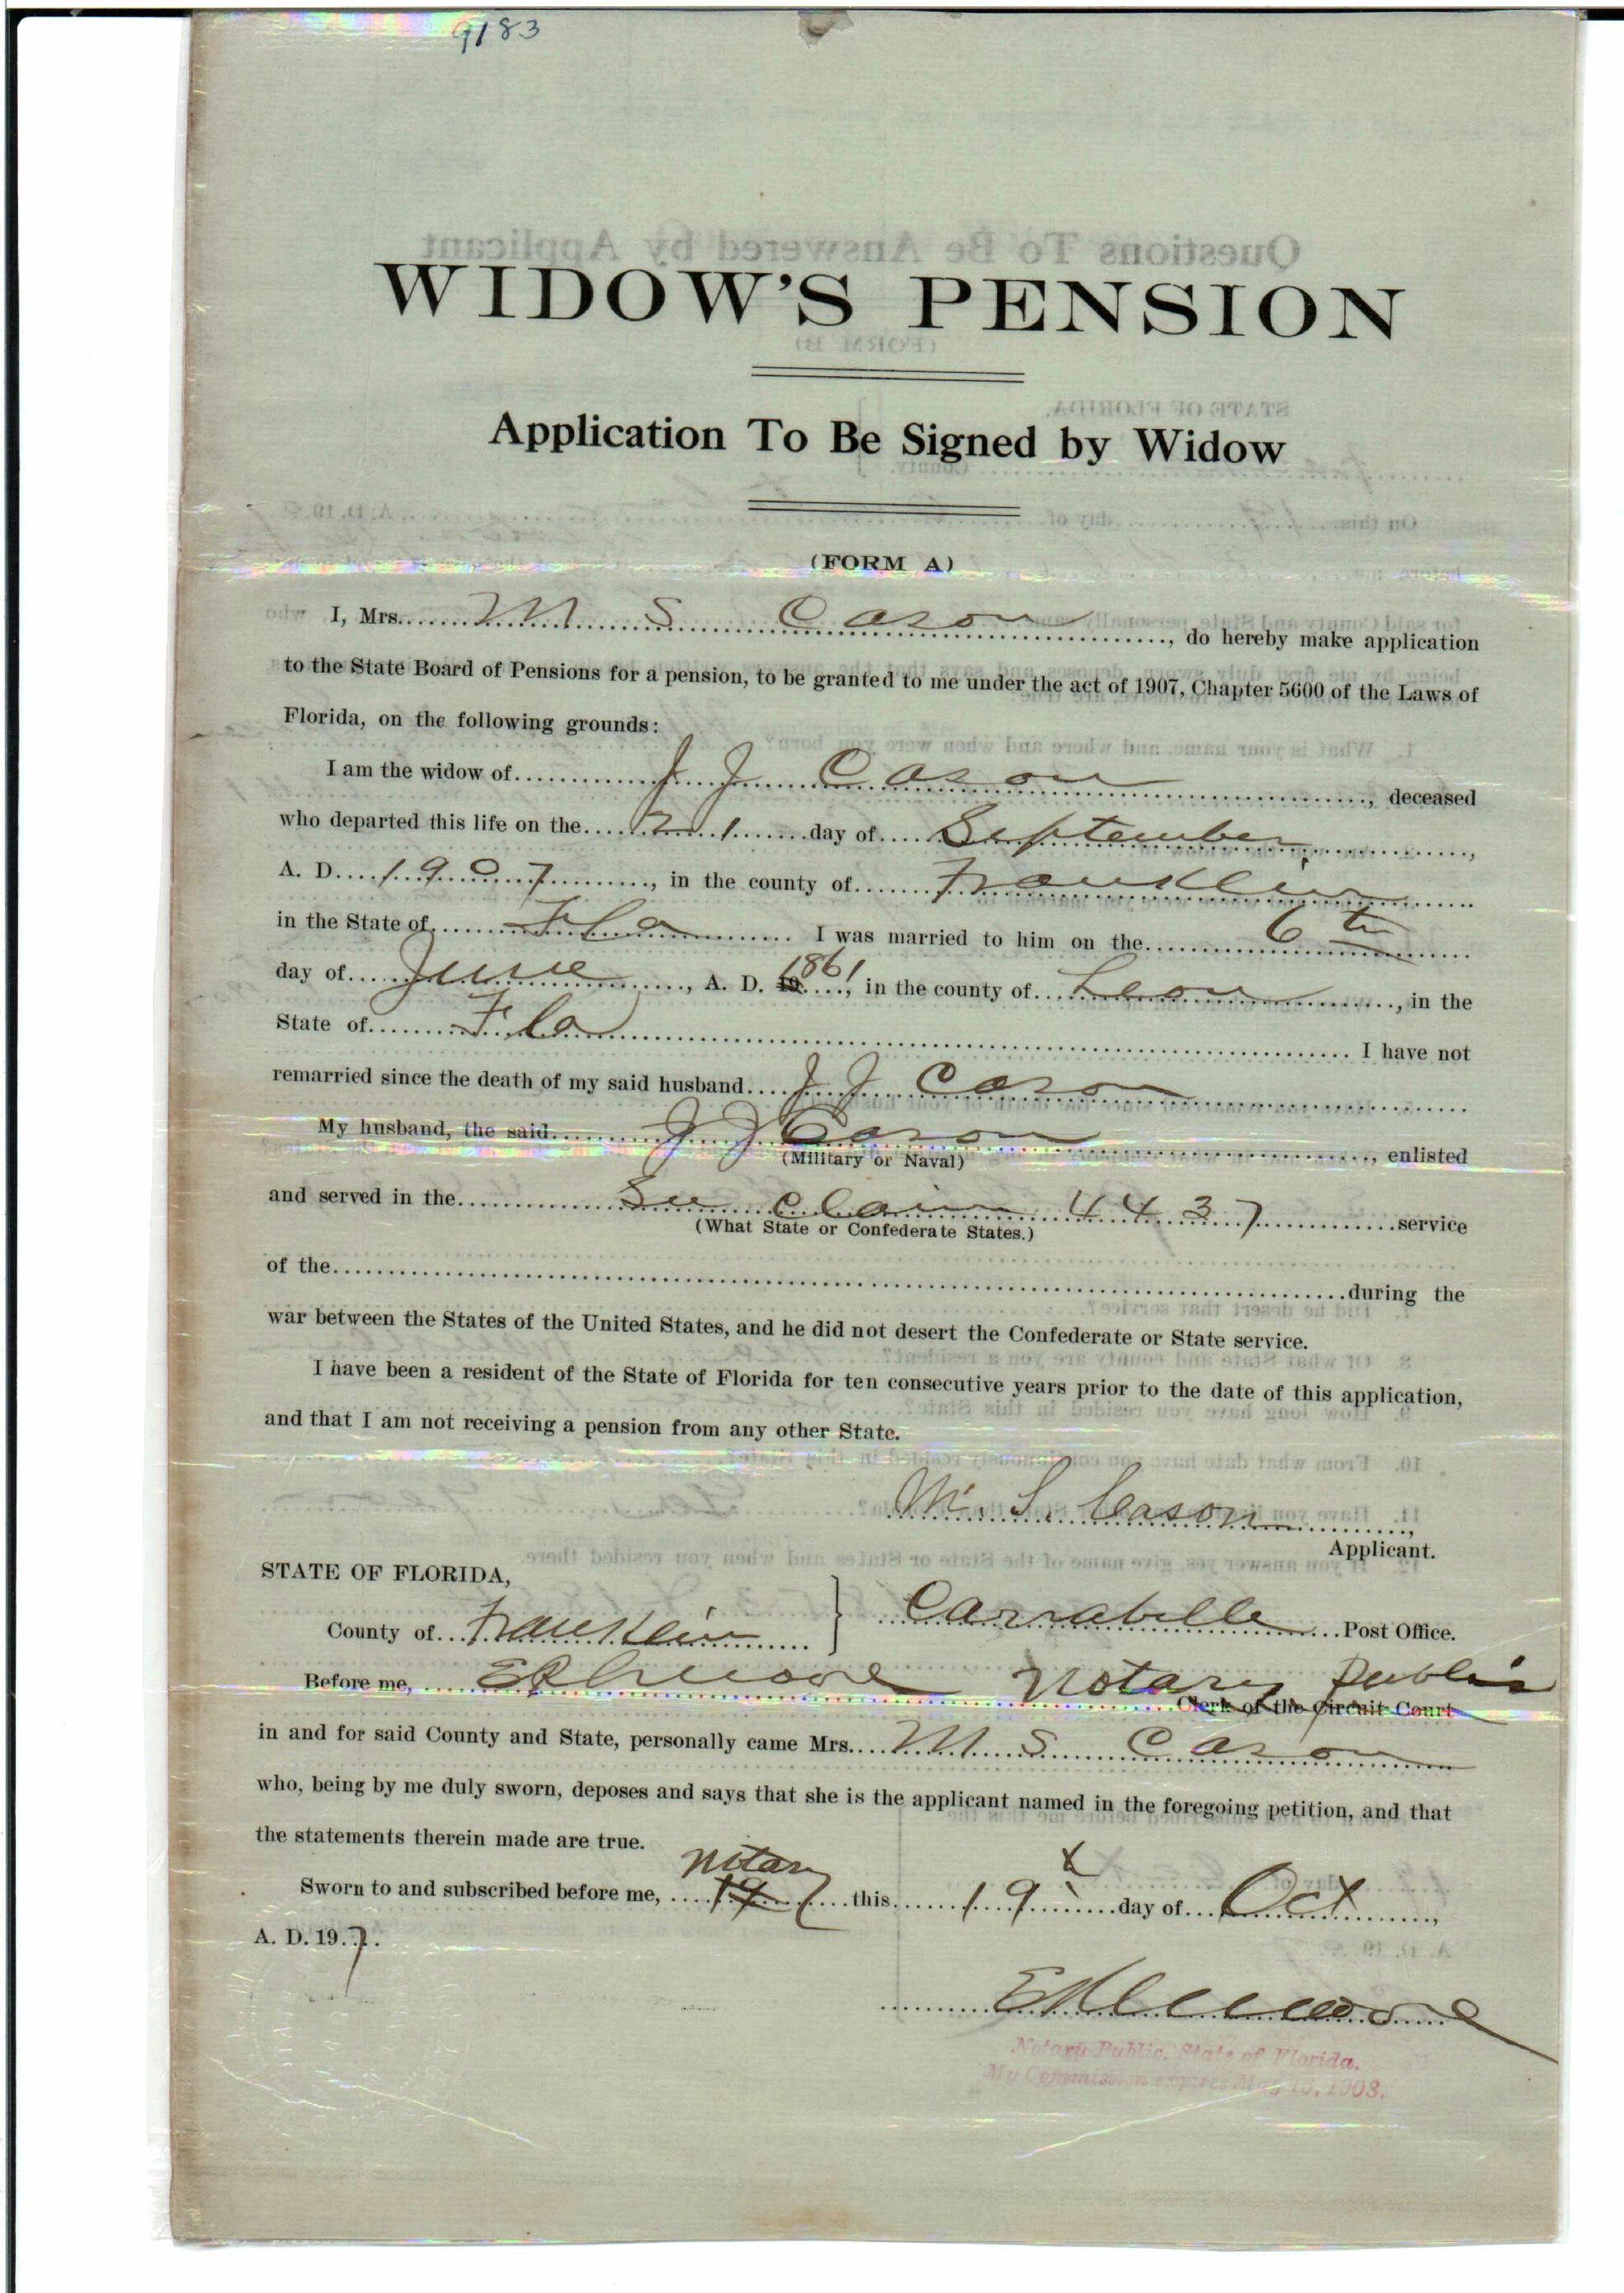 9183
WIDOW'S PENSION
Application To Be Signed by Widow
(FORM A)
I, Mrs. M S Cason, do hereby make application
to the State Board of Pensions for a pension, to be granted to me under the act of 1907, Chapter 5600 of the Laws of
Florida, on the following grounds:
I am the widow of J J Cason, deceased
who departed this life on the 21 day of September,
A. D. 1907, in the county of Franklin
in the State of Fla I was married to him on the 6th
day of June, A. D. 19 1861, in the county of Leon, in the
State of Fla I have not
remarried since the death of my said husband J J Cason
My husband, the said J J Cason, enlisted
(Military or Naval)
and served in the See Claim 4437 service
(What State or Confederate States.)
of the during the
war between the States of the United States, and he did not desert the Confederate or State service.
I have been a resident of the State of Florida for ten consecutive years prior to the date of this application,
and that I am not receiving a pension from any other State.
M. S. Cason,
Applicant.
STATE OF FLORIDA,
County of Franklin } Carrabelle Post Office.
Before me, Notary Public
Clerk of the Circuit Court
in and for said County and State, personally came Mrs. M S Cason
who, being by me duly sworn, deposes and says that she is the applicant named in the foregoing petition, and that
the statements therein made are true.
Notary
Sworn to and subscribed before me, this 19 day of Oct,
A. D. 197.
Notary Public, State of Florida.
My Commission expires May 13, 1908.